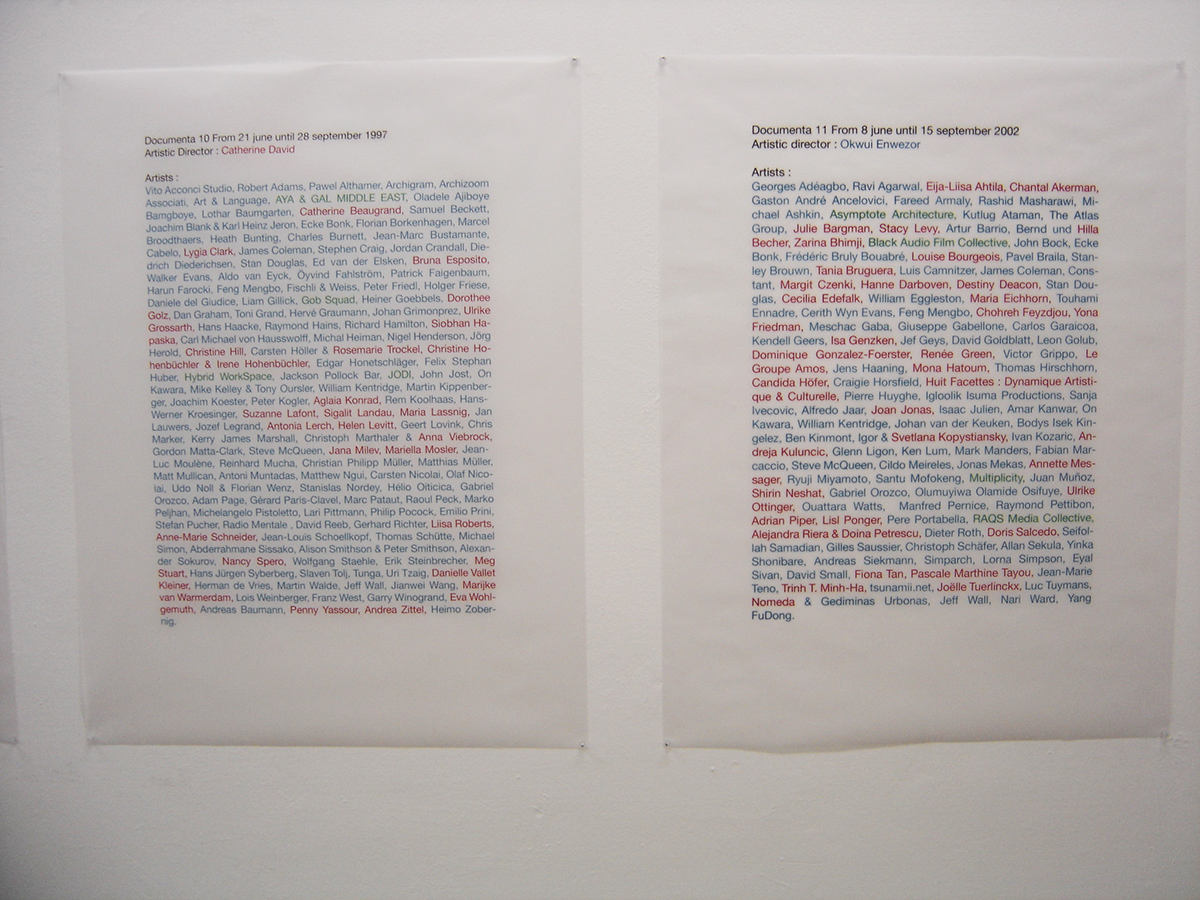 Documenta 10 From 21 june until 28 september 1997
Artistic Director : Catherine David
Artists :
Vito Acconci Studio, Robert Adams, Pawel Althamer, Archigram, Archizoom
Associati, Art & Language, AYA & GAL MIDDLE EAST, Oladele Ajiboye
Bamgboye, Lothar Baumgarten, Catherine Beaugrand, Samuel Beckett,
Joachim Blank & Karl Heinz Jeron, Ecke Bonk, Florian Borkenhagen, Marcel
Broodthaers, Heath Bunting, Charles Burnett, Jean-Marc Bustamante,
Cabelo, Lygia Clark, James Coleman, Stephen Craig, Jordan Crandall, Die-
drich Diederichsen, Stan Douglas, Ed van der Elsken, Bruna Esposito,
Walker Evans, Aldo van Eyck, Öyvind Fahlström, Patrick Faigenbaum,
Harun Farocki, Feng Mengbo, Fischli & Weiss, Peter Friedl, Holger Friese,
Daniele del Giudice, Liam Gillick, Gob Squad, Heiner Goebbels, Dorothee
Golz, Dan Graham, Toni Grand, Hervé Graumann, Johan Grimonprez, Ulrike
Grossarth, Hans Haacke, Raymond Hains, Richard Hamilton, Siobhan Ha-
paska, Carl Michael von Hausswolff, Michal Heiman, Nigel Henderson, Jörg
Herold, Christine Hill, Carsten Höller & Rosemarie Trockel, Christine Ho-
henbüchler & Irene Hohenbüchler, Edgar Honetschläger, Felix Stephan
Huber, Hybrid WorkSpace, Jackson Pollock Bar, JODI, John Jost, On
Kawara, Mike Kelley & Tony Oursler, William Kentridge, Martin Kippenber-
ger, Joachim Koester, Peter Kogler, Aglaia Konrad, Rem Koolhaas, Hans-
Werner Kroesinger, Suzanne Lafont, Sigalit Landau, Maria Lassnig, Jan
Lauwers, Jozef Legrand, Antonia Lerch, Helen Levitt, Geert Lovink, Chris
Marker, Kerry James Marshall, Christoph Marthaler & Anna Viebrock,
Gordon Matta-Clark, Steve McQueen, Jana Milev, Mariella Mosler, Jean-
Luc Moulène, Reinhard Mucha, Christian Philipp Müller, Matthias Müller,
Matt Mullican, Antoni Muntadas, Matthew Ngui, Carsten Nicolai, Olaf Nico-
lai, Udo Noll & Florian Wenz, Stanislas Nordey, Hélio Oiticica, Gabriel
Orozco, Adam Page, Gérard Paris-Clavel, Marc Pataut, Raoul Peck, Marko
Peljhan, Michelangelo Pistoletto, Lari Pittmann, Philip Pocock, Emilio Prini,
Stefan Pucher, Radio Mentale , David Reeb, Gerhard Richter, Liisa Roberts,
Anne-Marie Schneider, Jean-Louis Schoellkopf, Thomas Schütte, Michael
Simon, Abderrahmane Sissako, Alison Smithson & Peter Smithson, Alexan-
der Sokurov, Nancy Spero, Wolfgang Staehle, Erik Steinbrecher, Meg
Stuart, Hans Jürgen Syberberg, Slaven Tolj, Tunga, Uri Tzaig, Danielle Vallet
Kleiner, Herman de Vries, Martin Walde, Jeff Wall, Jianwei Wang, Marijke
van Warmerdam, Lois Weinberger, Franz West, Garry Winogrand, Eva Wohl-
gemuth, Andreas Baumann, Penny Yassour, Andrea Zittel, Heimo Zober-
nig.
Documenta 11 From 8 june until 15 september 2002
Artistic director : Okwui Enwezor
Artists :
Georges Adéagbo, Ravi Agarwal, Eija-Liisa Ahtila, Chantal Akerman,
Gaston André Ancelovici, Fareed Armaly, Rashid Masharawi, Mi-
chael Ashkin, Asymptote Architecture, Kutlug Ataman, The Atlas
Group, Julie Bargman, Stacy Levy, Artur Barrio, Bernd und Hilla
Becher, Zarina Bhimji, Black Audio Film Collective, John Bock, Ecke
Bonk, Frédéric Bruly Bouabré, Louise Bourgeois, Pavel Braila, Stan-
ley Brouwn, Tania Bruguera, Luis Camnitzer, James Coleman, Cons-
tant, Margit Czenki, Hanne Darboven, Destiny Deacon, Stan Dou-
glas, Cecilia Edefalk, William Eggleston, Maria Eichhorn, Touhami
Ennadre, Cerith Wyn Evans, Feng Mengbo, Chohreh Feyzdjou, Yona
Friedman, Meschac Gaba, Giuseppe Gabellone, Carlos Garaicoa,
Kendell Geers, Isa Genzken, Jef Geys, David Goldblatt, Leon Golub,
Dominique Gonzalez-Foerster, Renée Green, Victor Grippo, Le
Groupe Amos, Jens Haaning, Mona Hatoum, Thomas Hirschhorn,
Candida Höfer, Craigie Horsfield, Huit Facettes : Dynamique Artisti-
que & Culturelle, Pierre Huyghe, Igloolik Isuma Productions, Sanja
Ivecovic, Alfredo Jaar, Joan Jonas, Isaac Julien, Amar Kanwar, On
Kawara, William Kentridge, Johan van der Keuken, Bodys Isek Kin-
gelez, Ben Kinmont, Igor & Svetlana Kopystiansky, Ivan Kozaric, An-
dreja Kuluncic, Glenn Ligon, Ken Lum, Mark Manders, Fabian Mar-
caccio, Steve McQueen, Cildo Meireles, Jonas Mekas, Annette Mes-
sager, Ryuji Miyamoto, Santu Mofokeng, Multiplicity, Juan Muñoz,
Shirin Neshat, Gabriel Orozco, Olumuyiwa Olamide Osifuye, Ulrike
Ottinger, Ouattara Watts, Manfred Pernice, Raymond Pettibon,
Adrian Piper, Lisl Ponger, Pere Portabella, RAQS Media Collective,
Alejandra Riera & Doina Petrescu, Dieter Roth, Doris Salcedo, Seifol-
lah Samadian, Gilles Saussier, Christoph Schäfer, Allan Sekula, Yinka
Shonibare, Andreas Siekmann, Simparch, Lorna Simpson, Eyal
Sivan, David Small, Fiona Tan, Pascale Marthine Tayou, Jean-Marie
Teno, Trinh T. Minh-Ha, tsunamii.net, Joëlle Tuerlinckx, Luc Tuymans,
Nomeda & Gediminas Urbonas, Jeff Wall, Nari Ward, Yang
FuDong.